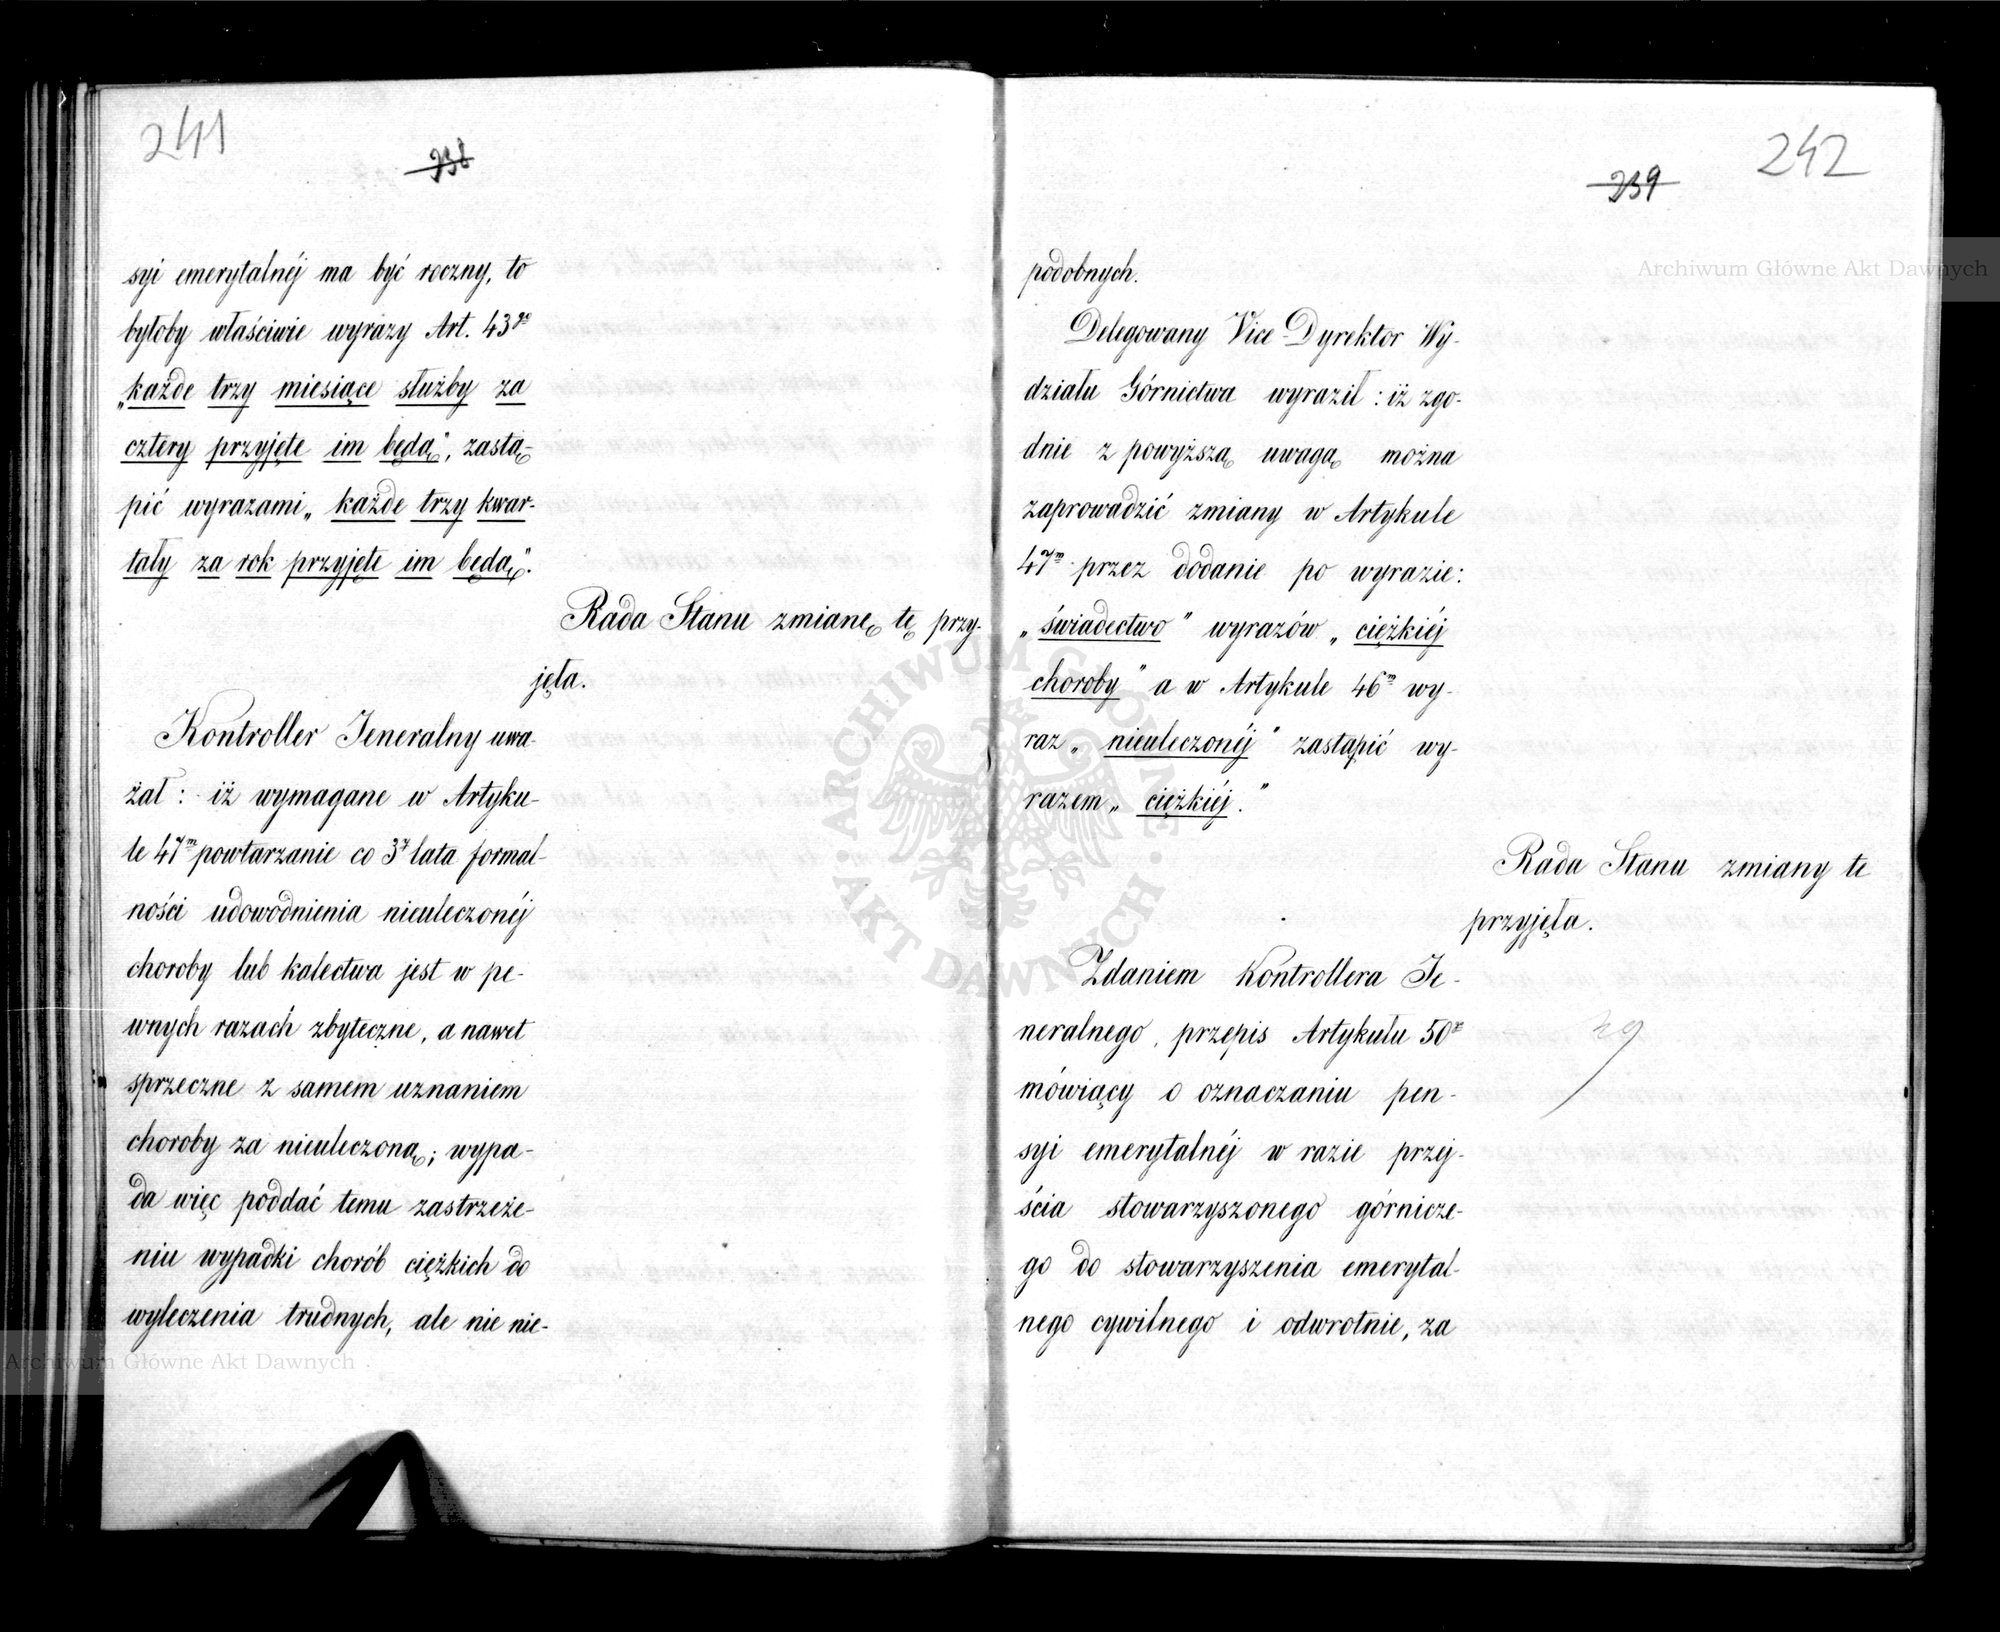 241
238
syi emerytalnéj ma być roczny, to
byłoby właściwie wyrazy Art. 43go
„każde trzy miesiące służby za
cztery przyjęte im będą", zastą-
pić wyrazami „każde trzy kwar-
tały za rok przyjęte im będą".
Rada Stanu zmianę tę przy-
jęła.
Kontroller Jeneralny uwa-
żał: iż wymagane w Artyku-
le 47m powtarzanie co 3y lata formal-
ności udowodnienia nieuleczonéj
choroby lub kalectwa jest w pe-
wnych razach zbyteczne, a nawet
sprzeczne z samem uznaniem
choroby za nieuleczoną; wypa-
da więc poddać temu zastrzeże-
niu wypadki chorób ciężkich do
wyleczenia trudnych, ale nie nie-
242
239
podobnych.
Delegowany Vice-Dyrektor Wy-
działu Górnictwa wyraził: iż zgo-
dnie z powyższą uwagą można
zaprowadzić zmiany w Artykule
47m przez dodanie po wyrazie:
„świadectwo" wyrazów „ciężkiéj
choroby" a w Artykule 46m wy-
raz „nieuleczonéj" zastąpić wy-
razem „ciężkiéj."
Rada Stanu zmiany te
przyjęła.
Zdaniem Kontrollera Je-
neralnego, przepis Artykułu 50
mówiący o oznaczaniu pen-
syi emerytalnéj w razie przej-
ścia stowarzyszonego górnicze-
go do stowarzyszenia emerytal-
nego cywilnego i odwrotnie, za
Archiwum Główne Akt Dawnych
Archiwum Główne Akt Dawnych
ARCHIWUM GŁÓWNE · AKT DAWNYCH ·